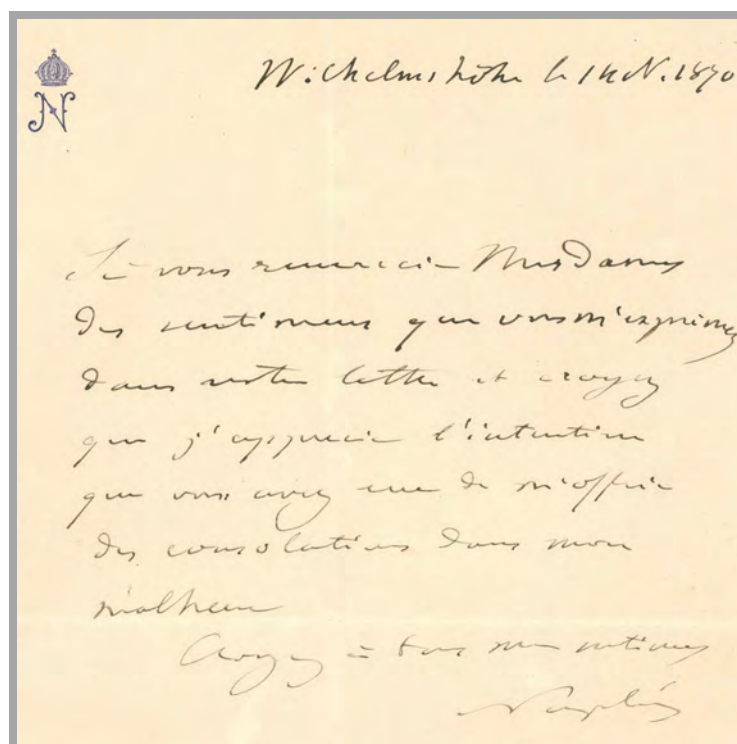 N
Wilhelmshöhe le 14 N. 1870
Je vous remercie Mesdames
des sentimens que vous m'exprimez
dans votre lettre et croyez
que j'apprecie l'intention
que vous avez eue de m'offrir
des consolations dans mon
malheur
Croyez à tous mes sentimens
Napoléon